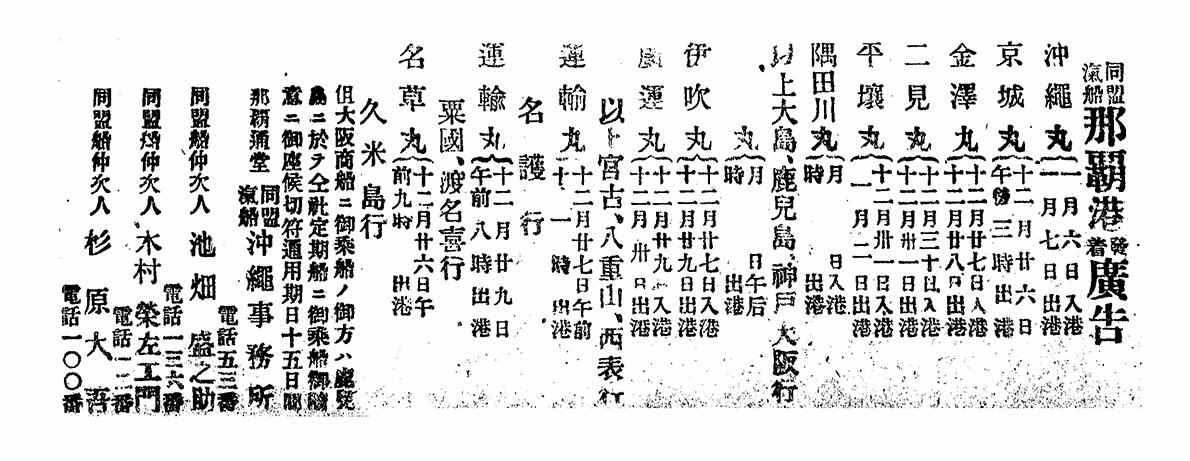 同盟
滊船
那覇港
發
着
廣告
沖繩丸
一月六日入港
一月七日出港
京城丸
十二月廿六日
午後三時出港
金澤丸
十二月廿七日入港
十二月廿八日出港
二見丸
十二月三十日入港
十二月卅一日出港
平壤丸
十二月卅一日入港
一月二日出港
隅田川丸
月 日入港
時 出港
以上大島、鹿兒島、神戸大阪行
丸
月 日午后
時 出港
伊吹丸
十二月廿七日入港
十二月廿九日出港
廣運丸
十二月廿九日入港
十二月卅日出港
以上宮古、八重山、西表行
運輸丸
十二月廿七日午前
十一時出港
名護行
運輸丸
十二月廿九日
午前八時出港
粟國、渡名喜行
名草丸
十二月廿六日午
前九時出港
久米島行
但大阪商船ニ御乘船ノ御方ハ鹿兒
島ニ於テ仝社定期船ニ御乘船御隨
意ニ御座候切符通用期日十五日間
那覇通堂
同盟
滊船
沖繩事務所
電話五三番
同盟船仲次人 池畑盛之助
電話一三六番
同盟船仲次人 木村榮左工門
電話一二番
同盟船仲次人 杉原大吾
電話一〇〇番